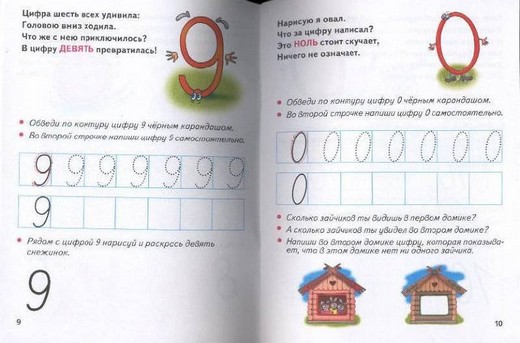 Цифра шесть всех удивила:
Головою вниз ходила.
Что же с нею приключилось?
В цифру ДЕВЯТЬ превратилась!
9
Обведи по контуру цифру 9 чёрным карандашом.
Во второй строчке напиши цифру 9 самостоятельно.
9 9 9 9 9 9 9
9
Рядом с цифрой 9 нарисуй и раскрось девять
снежинок.
9
9
Нарисую я овал.
Что за цифру написал?
Это НОЛЬ стоит скучает,
Ничего не означает.
0
Обведи по контуру цифру 0 чёрным карандашом.
Во второй строчке напиши цифру 0 самостоятельно.
0 0 0 0 0 0 0
0
Сколько зайчиков ты видишь в первом домике?
А сколько зайчиков ты увидел во втором домике?
Напиши во втором домике цифру, которая показыва-
ет, что в этом домике нет ни одного зайчика.
10